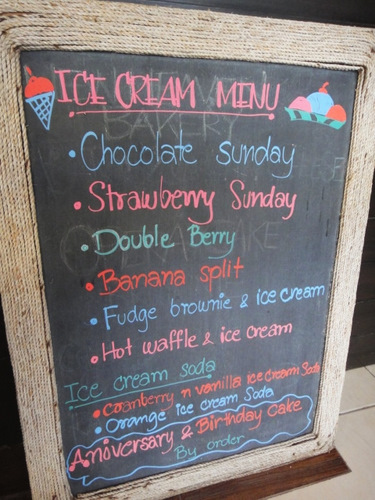 ICE CREAM MENU
BAKERY
• Chocolate sunday
• Strawberry Sunday
• Double Berry
CAKE
• Banana split
• Fudge brownie & ice cream
• Hot waffle & ice cream
Ice cream soda
• Cranberry n vanilla ice cream Soda
• Orange ice cream Soda
Aniversary & Birthday Cake
By order